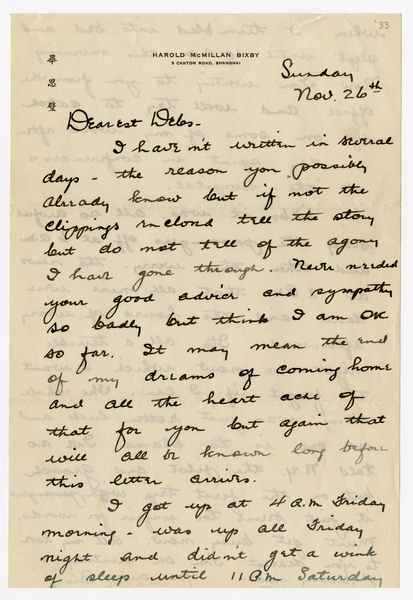 '33
畢
思
璧
HAROLD McMILLAN BIXBY
5 CANTON ROAD, SHANGHAI
Sunday
Nov. 26th
Dearest Debs-
I haven't written in several
days - the reason you possibly
already know but if not the
clippings inclosed tell the story
but do not tell of the agony
I have gone through. Never needed
your good advice and sympathy
so badly but think I am OK
so far. It may mean the end
of my dreams of coming home
and all the heart ache of
that for you but again that
will all be known long before
this letter arrives.
I got up at 4 A.M Friday
morning - was up all Friday
night and didn't get a wink
of sleep until 11 P.M. Saturday